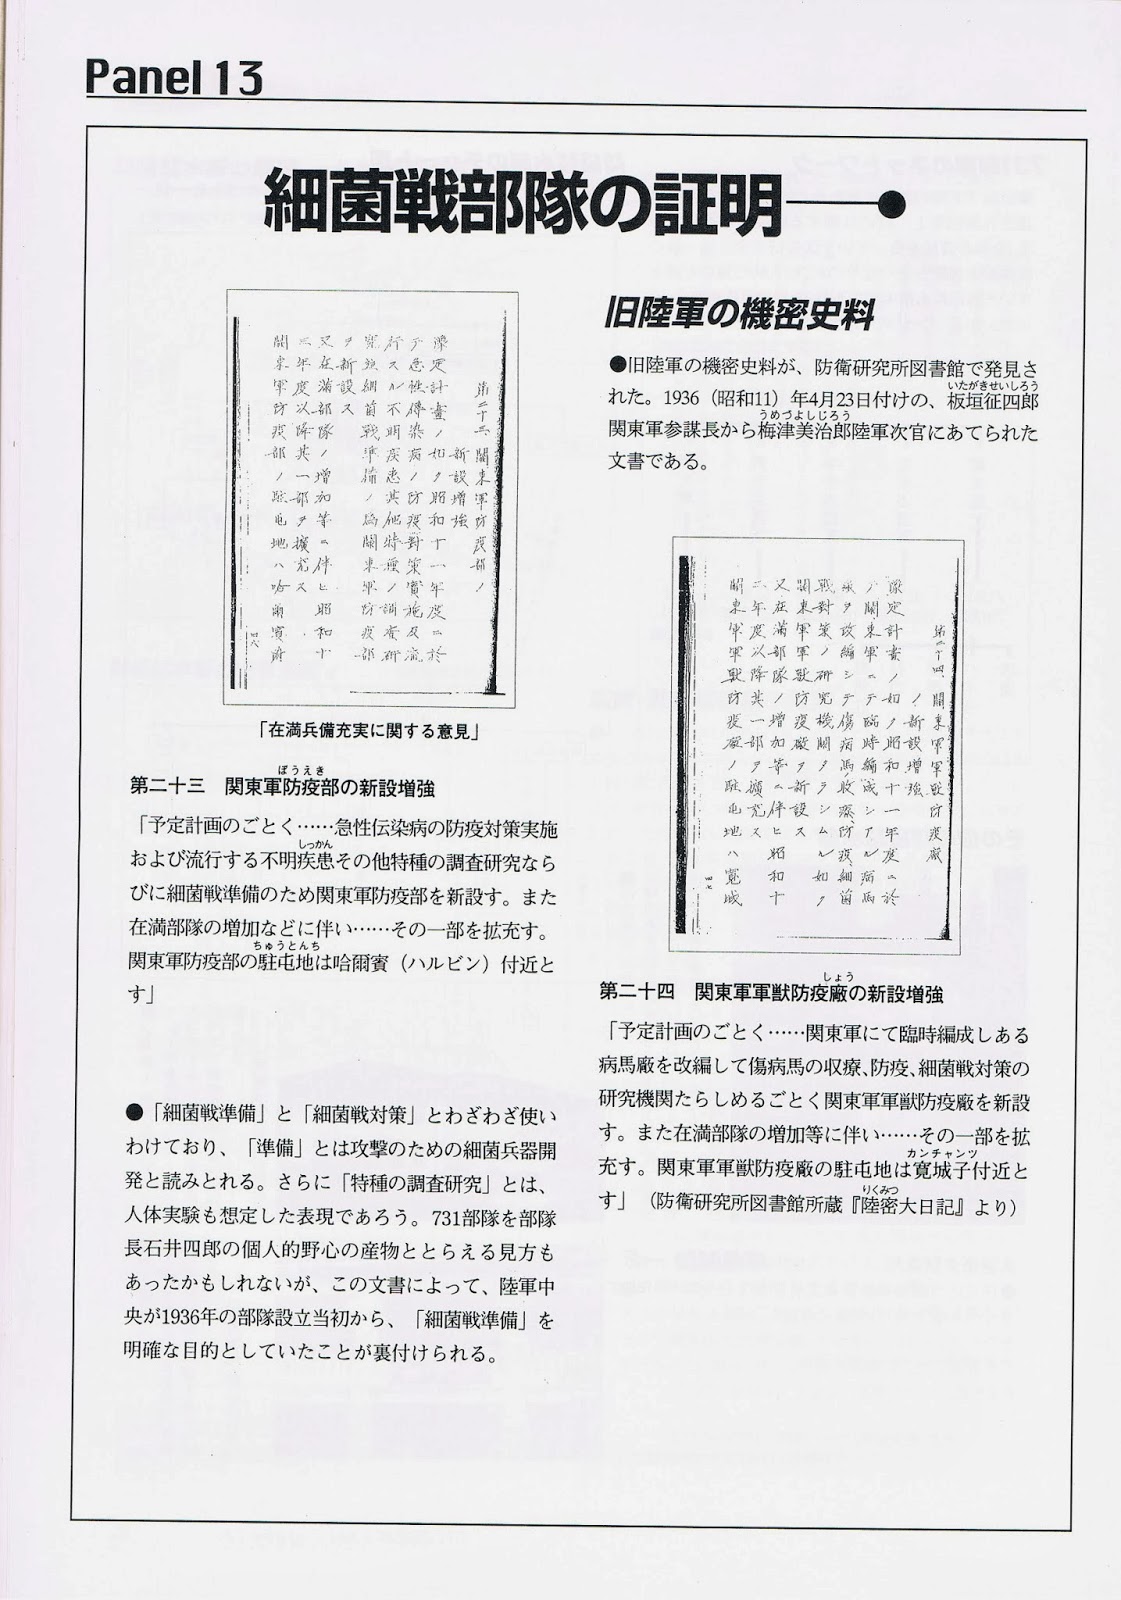 Panel 13
細菌戦部隊の証明
第二十三、關東軍防疫部ノ
新設増強
豫定計畫ノ如ク昭和十一年度ニ於
テ急性傳染病ノ防疫對策實施及流
行スル不明疾患其他特種ノ調査研
究並細菌戰準備ノ為關東軍防疫部
ヲ新設ス
又在滿部隊ノ増加等ニ伴ヒ昭和十
三年度以降其ノ一部ヲ擴充ス
關東軍防疫部ノ駐屯地ハ哈爾賓附
四八
「在満兵備充実に関する意見」
ぼうえき
第二十三　関東軍防疫部の新設増強
「予定計画のごとく……急性伝染病の防疫対策実施
しっかん
および流行する不明疾患その他特種の調査研究なら
びに細菌戦準備のため関東軍防疫部を新設す。また
在満部隊の増加などに伴い……その一部を拡充す。
ちゅうとんち
関東軍防疫部の駐屯地は哈爾賓（ハルビン）付近と
す」
●「細菌戦準備」と「細菌戦対策」とわざわざ使い
わけており、「準備」とは攻撃のための細菌兵器開
発と読みとれる。さらに「特種の調査研究」とは、
人体実験も想定した表現であろう。731部隊を部隊
長石井四郎の個人的野心の産物ととらえる見方も
あったかもしれないが、この文書によって、陸軍中
央が1936年の部隊設立当初から、「細菌戦準備」を
明確な目的としていたことが裏付けられる。
旧陸軍の機密史料
●旧陸軍の機密史料が、防衛研究所図書館で発見さ
いたがきせいしろう
れた。1936（昭和11）年4月23日付けの、板垣征四郎
うめづよしじろう
関東軍参謀長から梅津美治郎陸軍次官にあてられた
文書である。
第二十四、關東軍軍獸防疫廠
ノ新設増強
豫定計畫ノ如ク昭和十一年度ニ於
テ關東軍ニテ臨時編成シアル病馬
廠ヲ改編シテ傷病馬ノ收療、防疫、細菌
戰對策ノ研究機關タラシムル如ク
關東軍軍獸防疫廠ヲ新設ス
又在滿部隊ノ増加等ニ伴ヒ昭和十
三年度以降其ノ一部ヲ擴充ス
關東軍軍獸防疫廠ノ駐屯地ハ寛城
四七
しょう
第二十四　関東軍軍獣防疫廠の新設増強
「予定計画のごとく……関東軍にて臨時編成しある
病馬廠を改編して傷病馬の収療、防疫、細菌戦対策の
研究機関たらしめるごとく関東軍軍獣防疫廠を新設
す。また在満部隊の増加等に伴い……その一部を拡
カンチャンツ
充す。関東軍軍獣防疫廠の駐屯地は寛城子付近と
りくみつ
す」（防衛研究所図書館所蔵『陸密大日記』より）